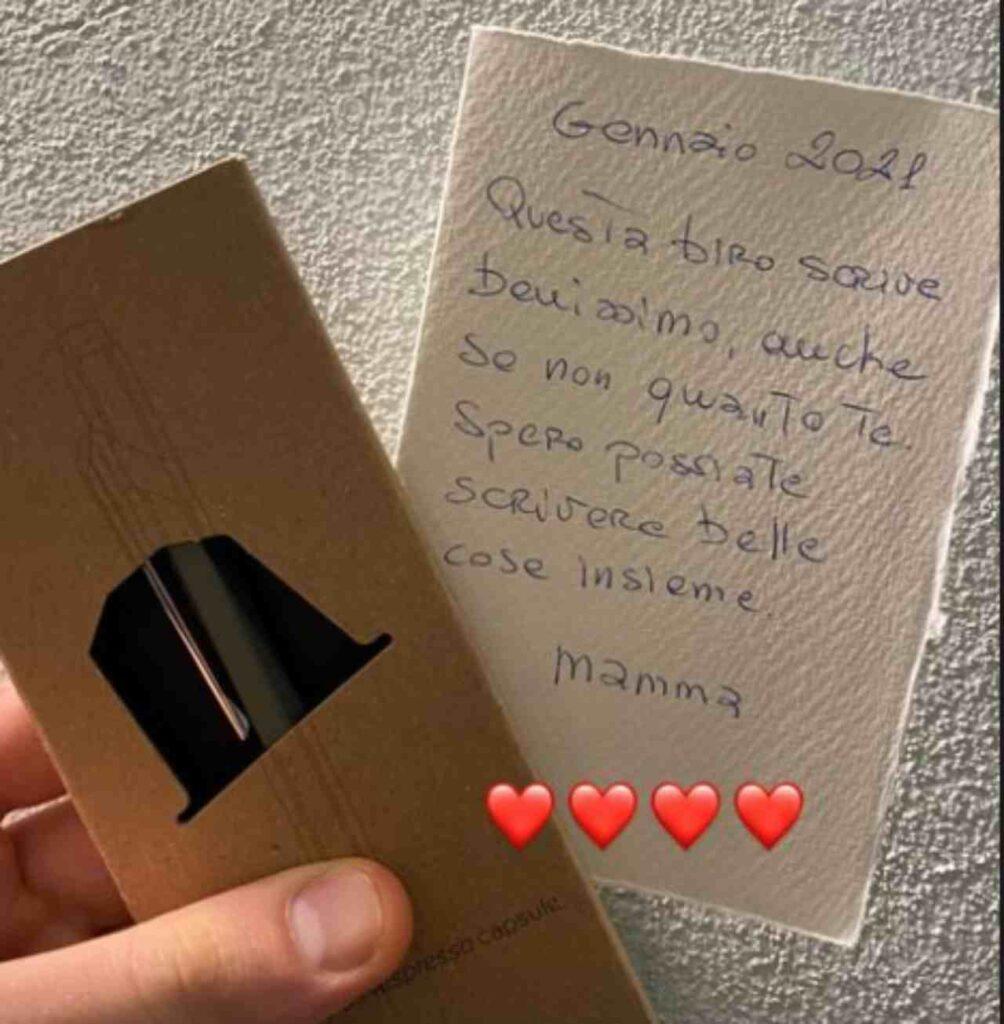 Gennaio 2021
Questa biro scrive
benissimo, anche
se non quanto te.
Spero possiate
scrivere belle
cose insieme.
Mamma
espresso capsule.